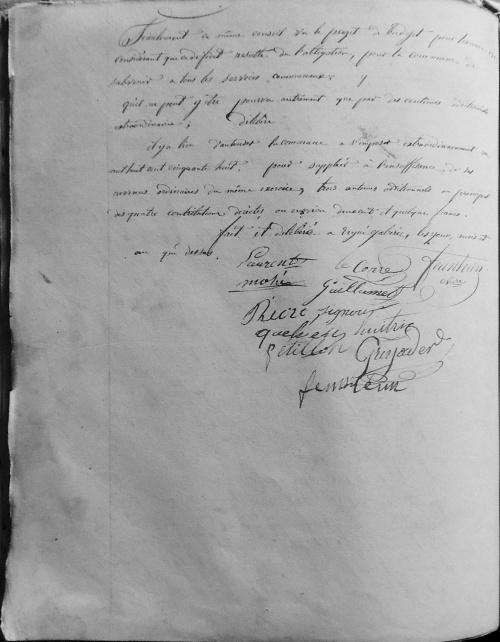 Finalement le même conseil vu le projet de budget pour
considérant que ce déficit résulte de l'obligation, pour la commune de
subvenir à tous les services communaux;
qu'il ne peut y être pourvu autrement que par des centimes
extraordinaires; délibère
il y a lieu d'autoriser la commune à s'imposer extraordinairement en
mil huit cent cinquante huit, pour suppléer à l'insuffisance de ses
revenus ordinaires du même exercice, trois centimes additionnels au principal
des quatre contributions directes, ou environ deux cent et quelques francs.
fait et délibéré à Ergué-Gabéric, les jour, mois et
an que dessus.
Laurent le Corre
mahé Guillamet
Riere signour
huitric
Petillon